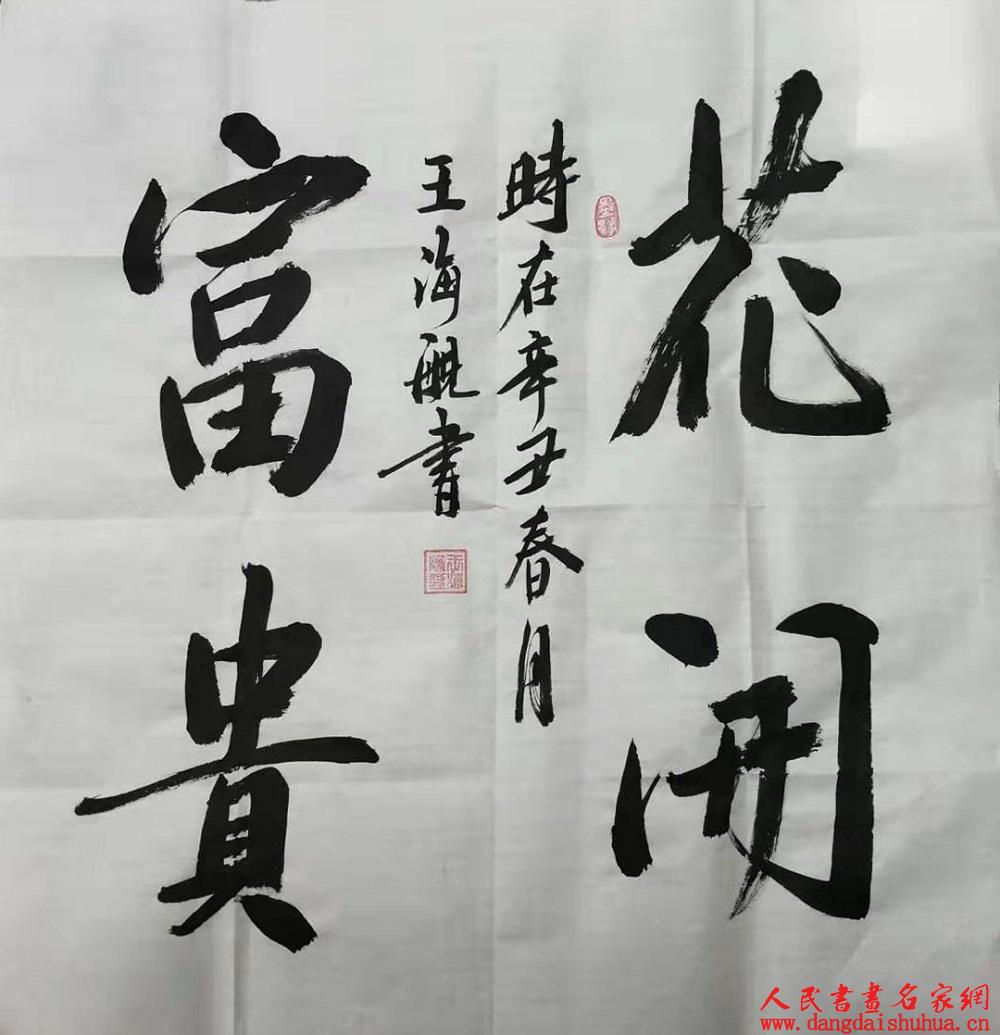 花開
富貴
時在辛丑春月
王海舰書
人民書畫名家網
www.dangdaishuhua.cn